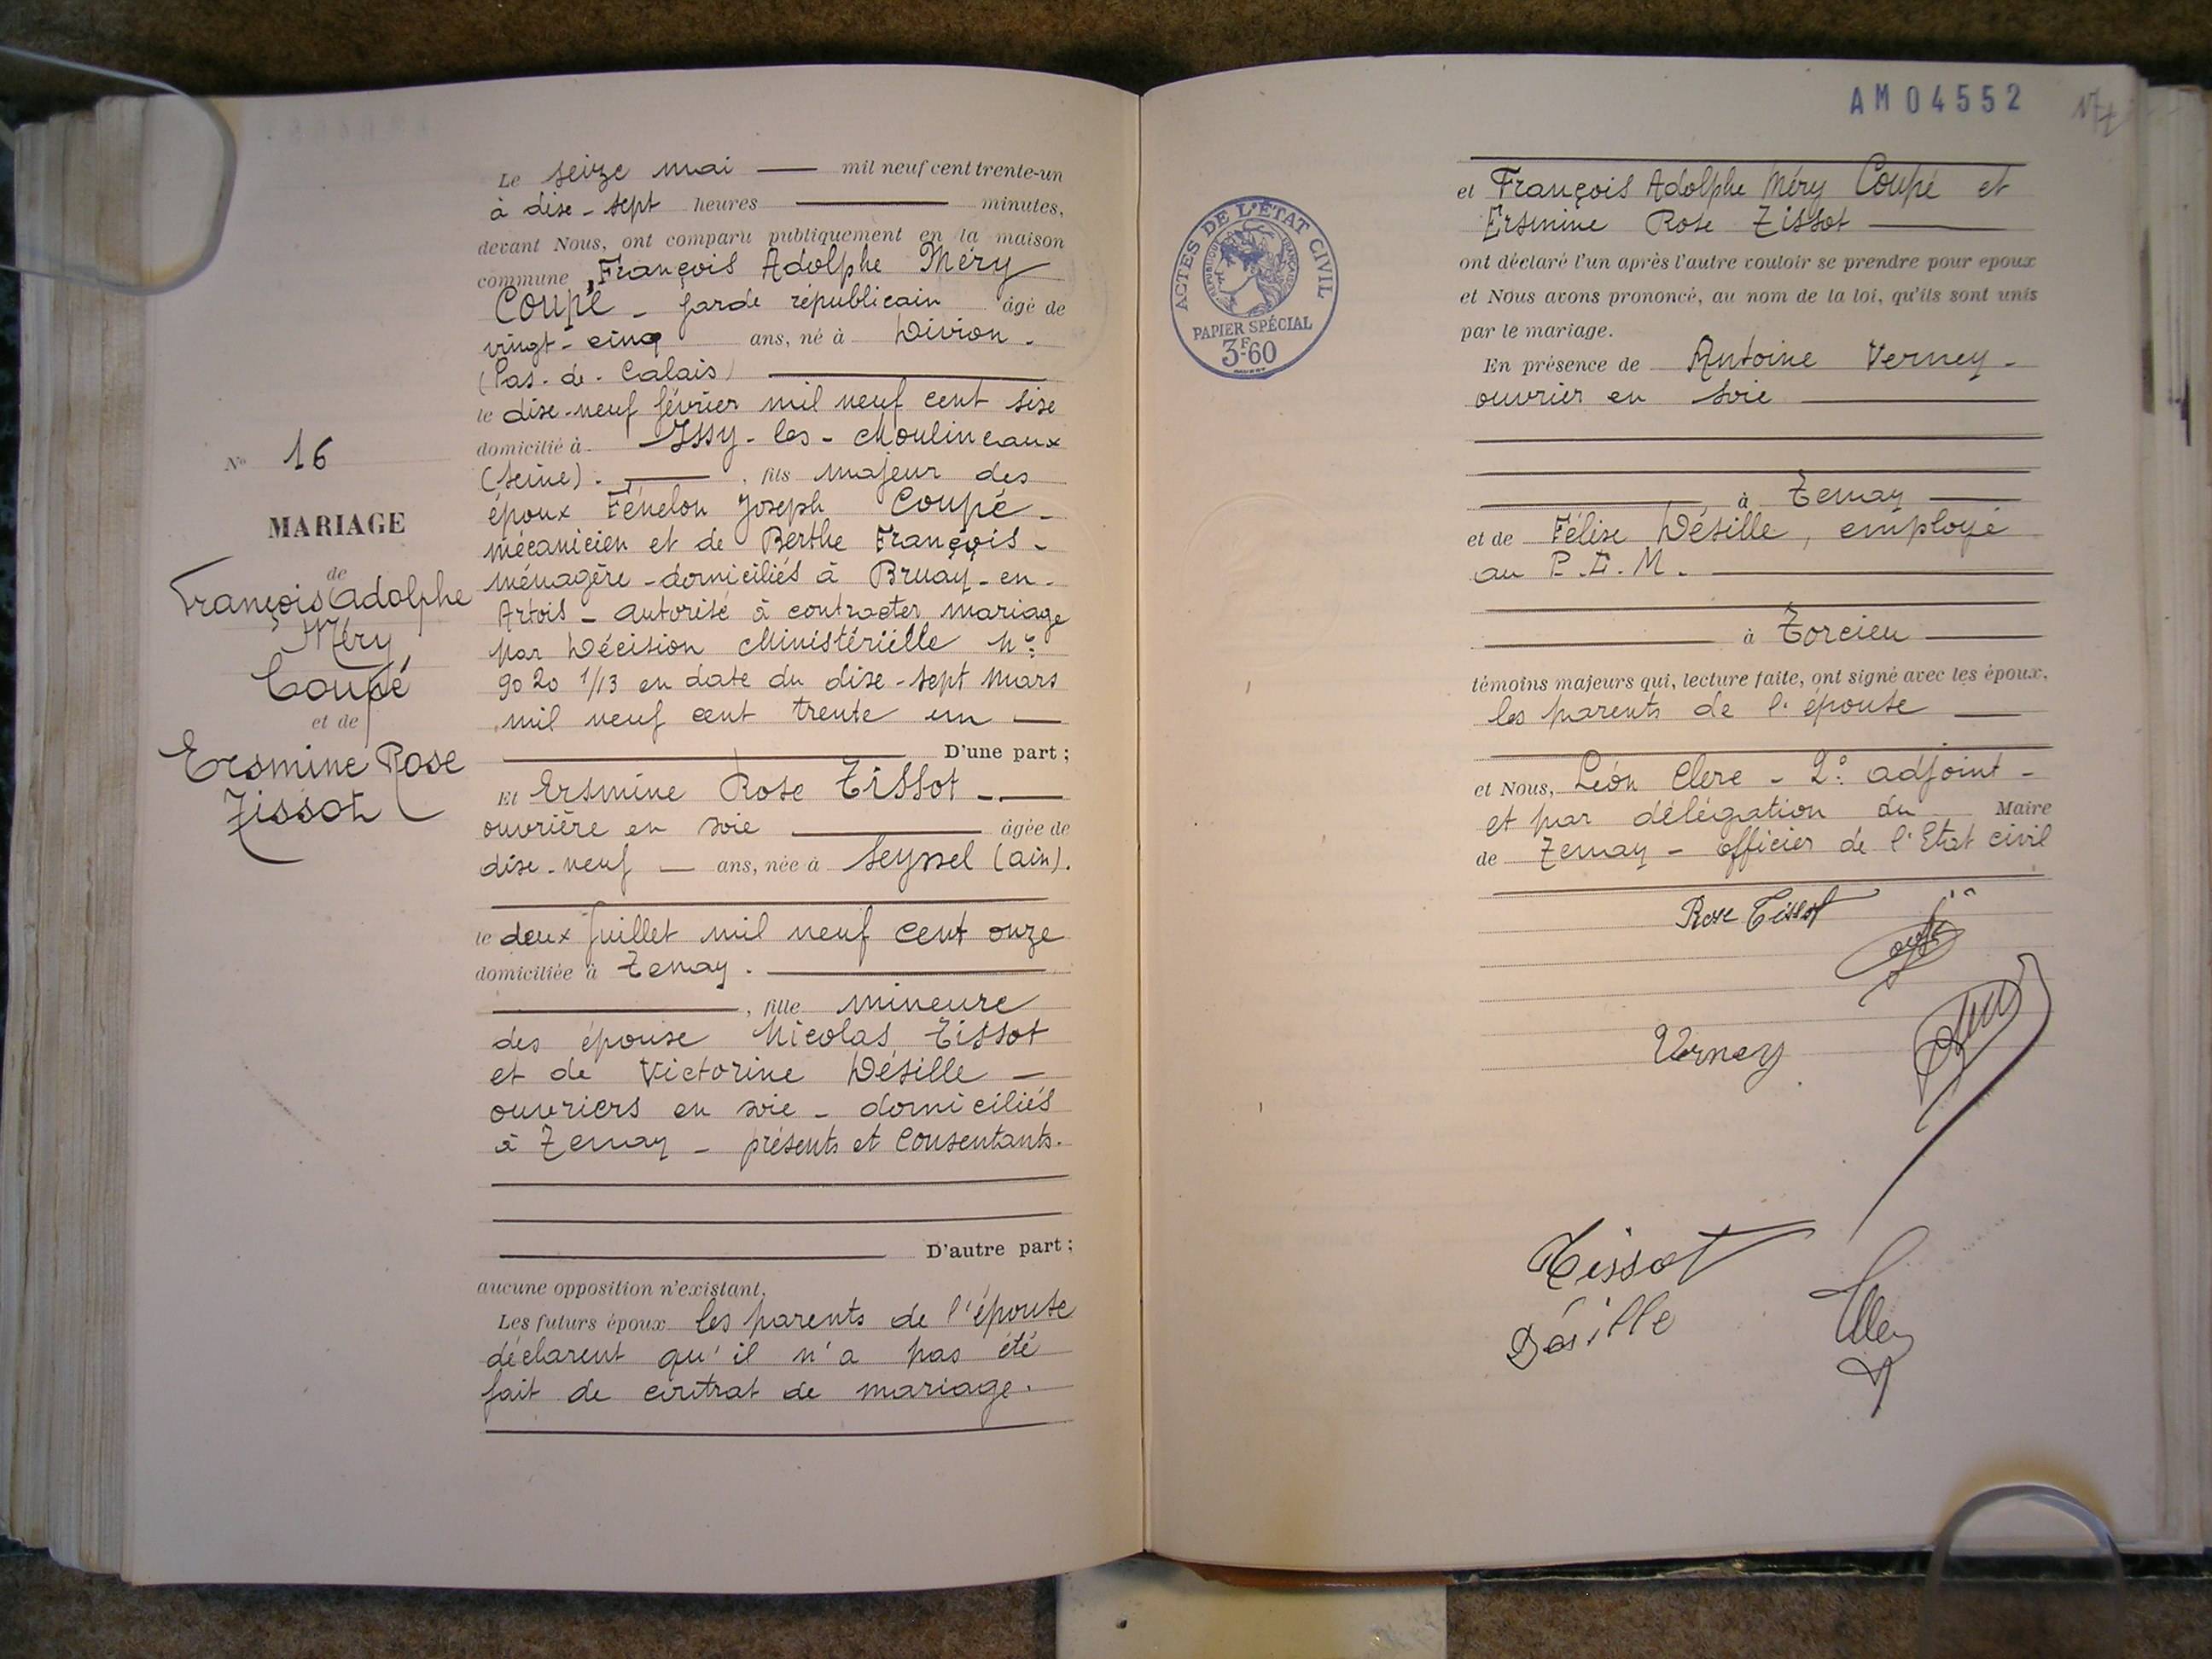 Le seize mai — mil neuf cent trente-un
à dix-sept heures — minutes,
devant Nous, ont comparu publiquement en la maison
commune, François Adolphe Méry
Coupé - garde républicain âgé de
vingt-cinq ans, né à Divion.
(Pas-de-Calais)
le dix-neuf février mil neuf cent six
domicilié à Issy-les-Moulineaux
(Seine). —, fils majeur des
époux Fénelon Joseph Coupé -
mécanicien et de Berthe François -
ménagère - domiciliés à Bruay-en-
Artois - autorisé à contracter mariage
par Décision Ministérielle N°
9020 1/13 en date du dix-sept mars
mil neuf cent trente un —
D'une part ;
Et Ersmine Rose Tissot —
ouvrière en soie — âgée de
dix-neuf — ans, née à Seyssel (ain).
le deux juillet mil neuf cent onze
domiciliée à Tenay.
, fille mineure
des époux Nicolas Tissot
et de Victorine Désille —
ouvriers en soie - domiciliés
à Tenay - présents et consentants.
D'autre part ;
aucune opposition n'existant,
Les futurs époux les parents de l'épouse
déclarent qu'il n'a pas été
fait de contrat de mariage.
N° 16
MARIAGE
de
François Adolphe
Méry
Coupé
et de
Ersmine Rose
Tissot
AM04552
ACTES DE L'ÉTAT CIVIL
RÉPUBLIQUE FRANÇAISE
PAPIER SPÉCIAL
3F60
et François Adolphe Méry Coupé et
Ersmine Rose Tissot —
ont déclaré l'un après l'autre vouloir se prendre pour époux
et Nous avons prononcé, au nom de la loi, qu'ils sont unis
par le mariage.
En présence de Antoine Verney -
ouvrier en soie —
à Tenay —
et de Félix Désille, employé
au P.L.M. —
à Torcieu —
témoins majeurs qui, lecture faite, ont signé avec les époux,
les parents de l'épouse —
et Nous, Léon Clerc - 2° adjoint -
et par délégation du Maire
de Tenay - officier de l'Etat civil
Rose Tissot
Verney
Tissot
Désille